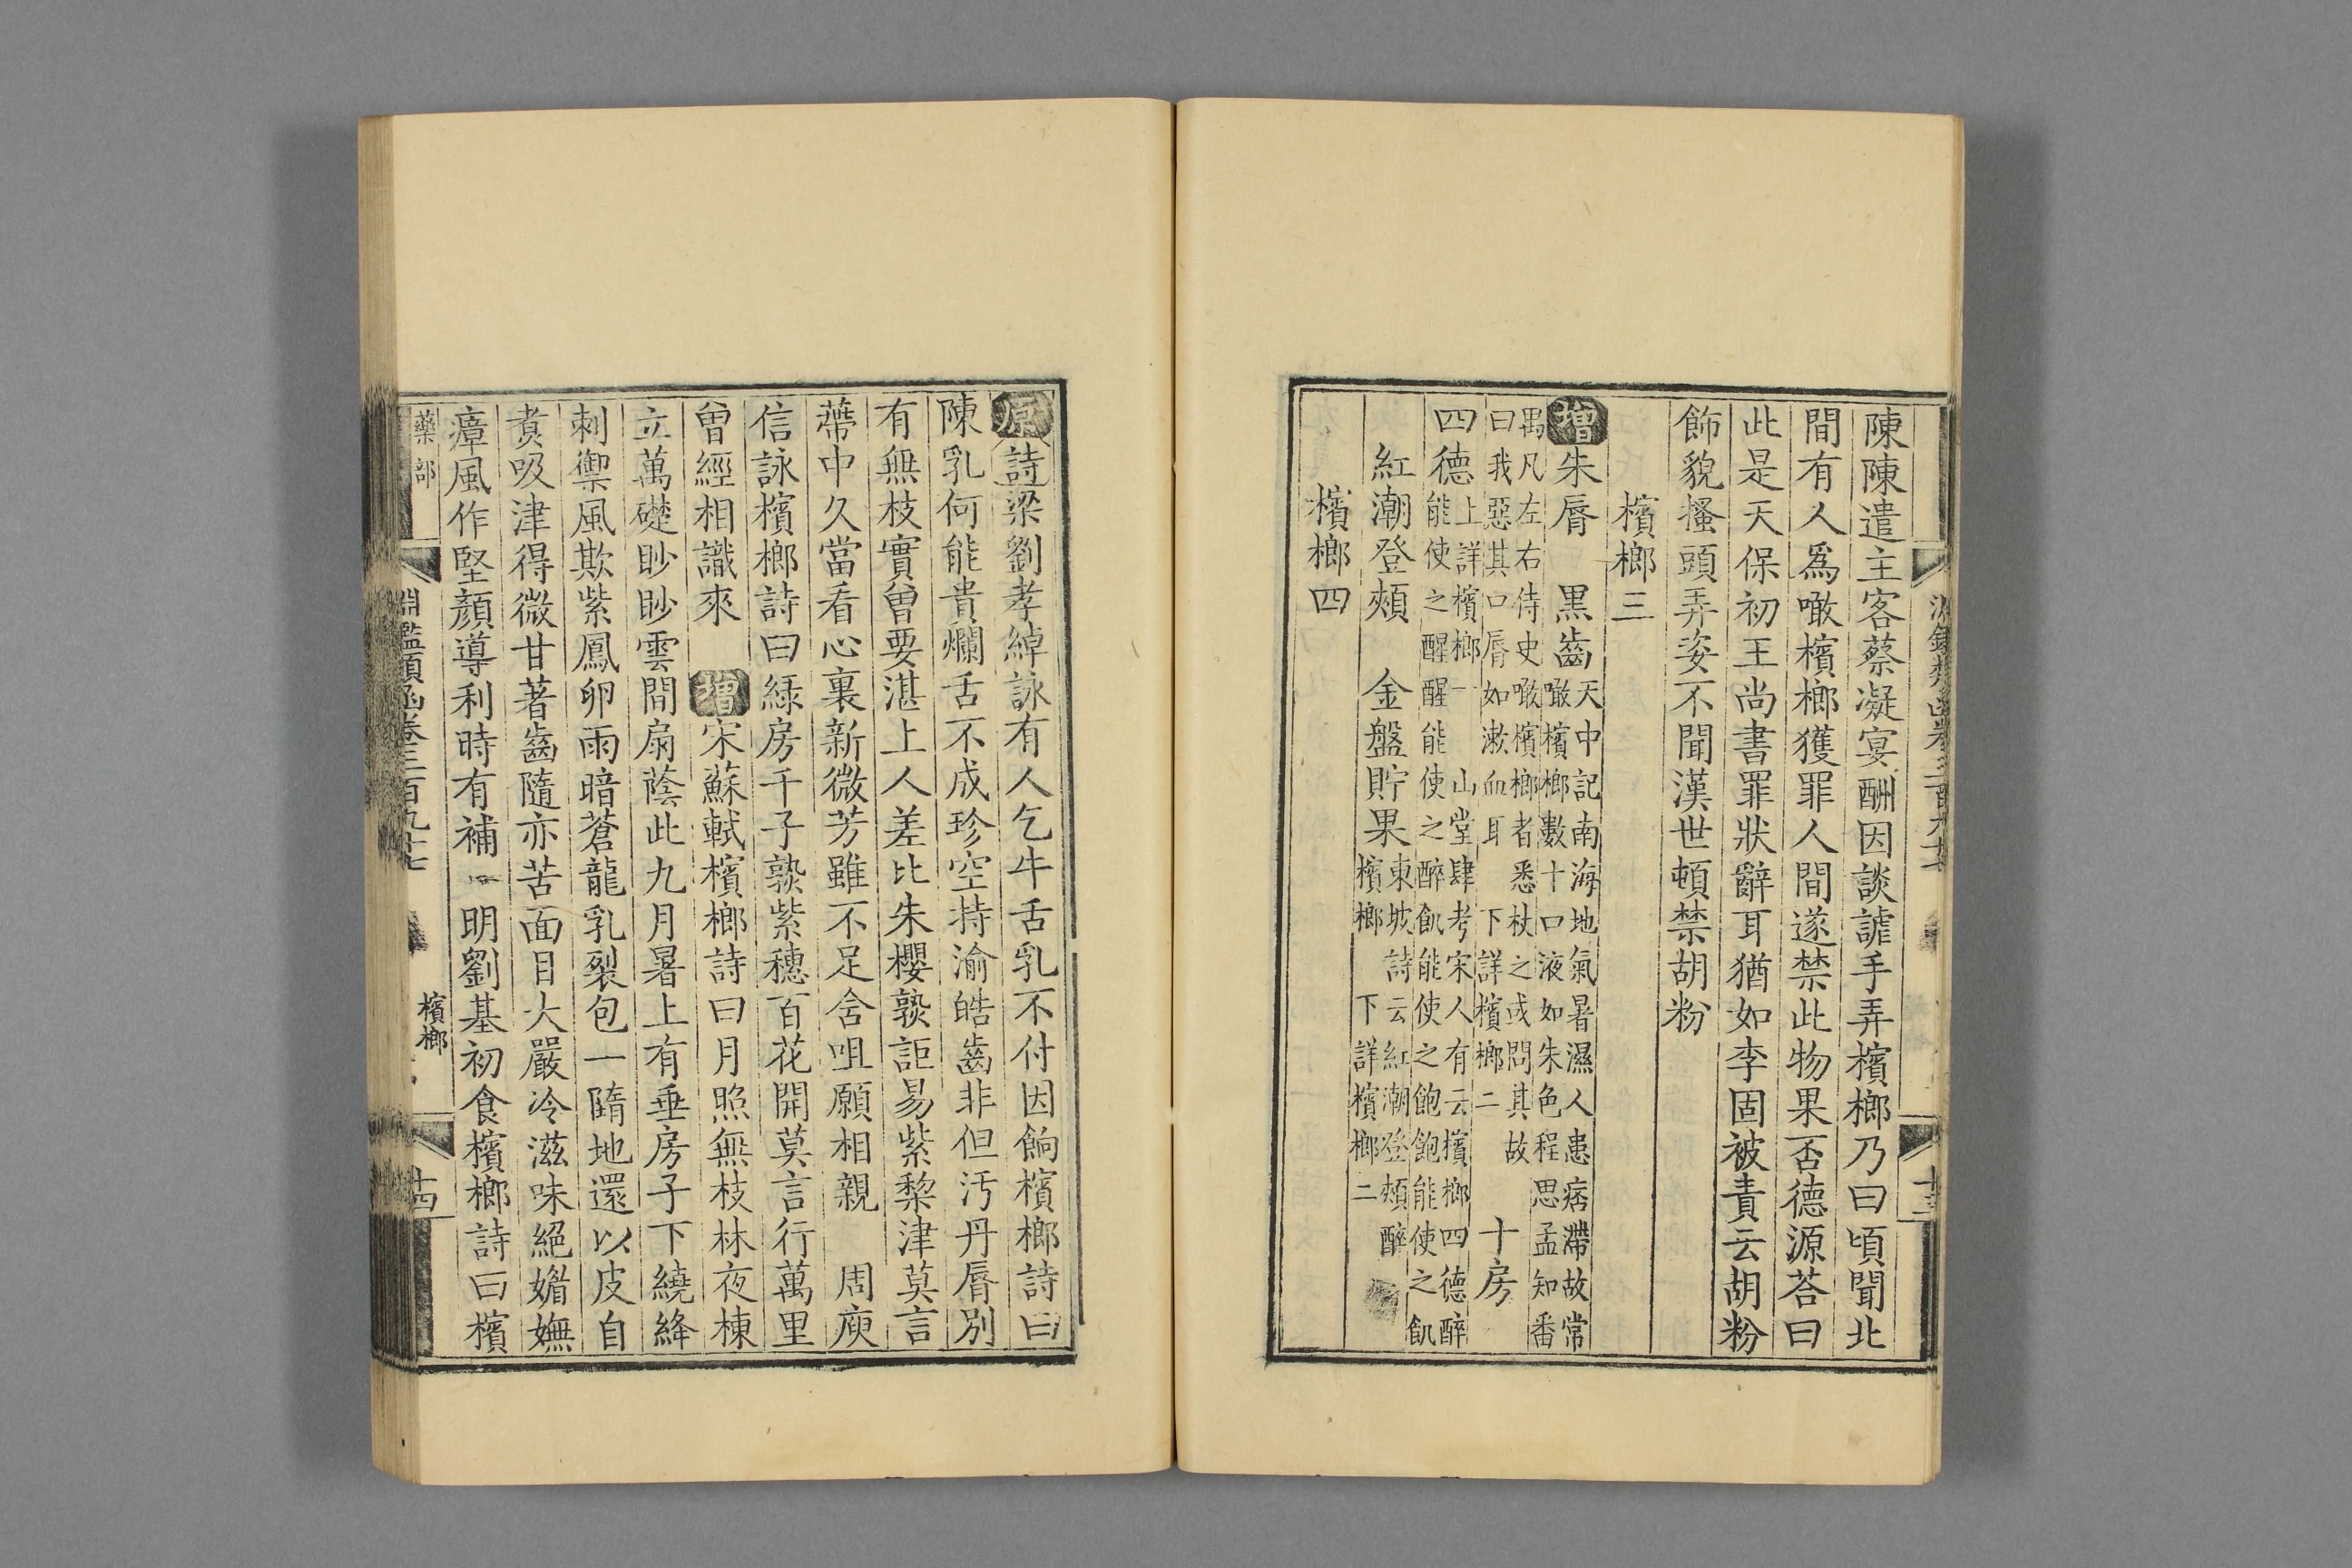 陳陳遣主客蔡凝宴酬因談謔手弄檳榔乃曰頃聞北
間有人爲噉檳榔獲罪人間遂禁此物果否德源荅曰
此是天保初王尚書罪狀辭耳猶如李固被責云胡粉
飾貌搔頭弄姿不聞漢世頓禁胡粉
檳榔三
增朱脣 黒齒天中記南海地氣暑濕人患痞滯故常
噉檳榔數十口液如朱色程思孟知番
禺凡左右侍史噉檳榔者悉杖之或問其故
曰我惡其口脣如漱血耳 下詳檳榔二 十房
四德上詳檳榔一 山堂肆考宋人有云檳榔四德醉
能使之醒醒能使之醉飢能使之飽飽能使之飢
紅潮登頰 金盤貯果東坡詩云紅潮登頰醉
檳榔 下詳檳榔二
檳榔四
原詩梁劉孝綽詠有人乞牛舌乳不付因餉檳榔詩曰
陳乳何能貴爛舌不成珍空持渝皓齒非但汚丹脣別
有無枝實曾要湛上人差比朱櫻孰詎易紫棃津莫言
蔕中久當看心裏新微芳雖不足含咀願相親 周庾
信詠檳榔詩曰綠房千子孰紫穗百花開莫言行萬里
曾經相識來 增宋蘇軾檳榔詩曰月照無枝林夜棟
立萬礎眇眇雲間扇蔭此九月暑上有垂房子下繞絳
刺禦風欺紫鳳卵雨暗蒼龍乳裂包一隋地還以皮自
煑吸津得微甘著齒隨亦苦面目大嚴冷滋味絕媚嫵
瘴風作堅顏導利時有補 明劉基初食檳榔詩曰檳
藥部
淵鑑類函卷三百九十七
檳榔
十四